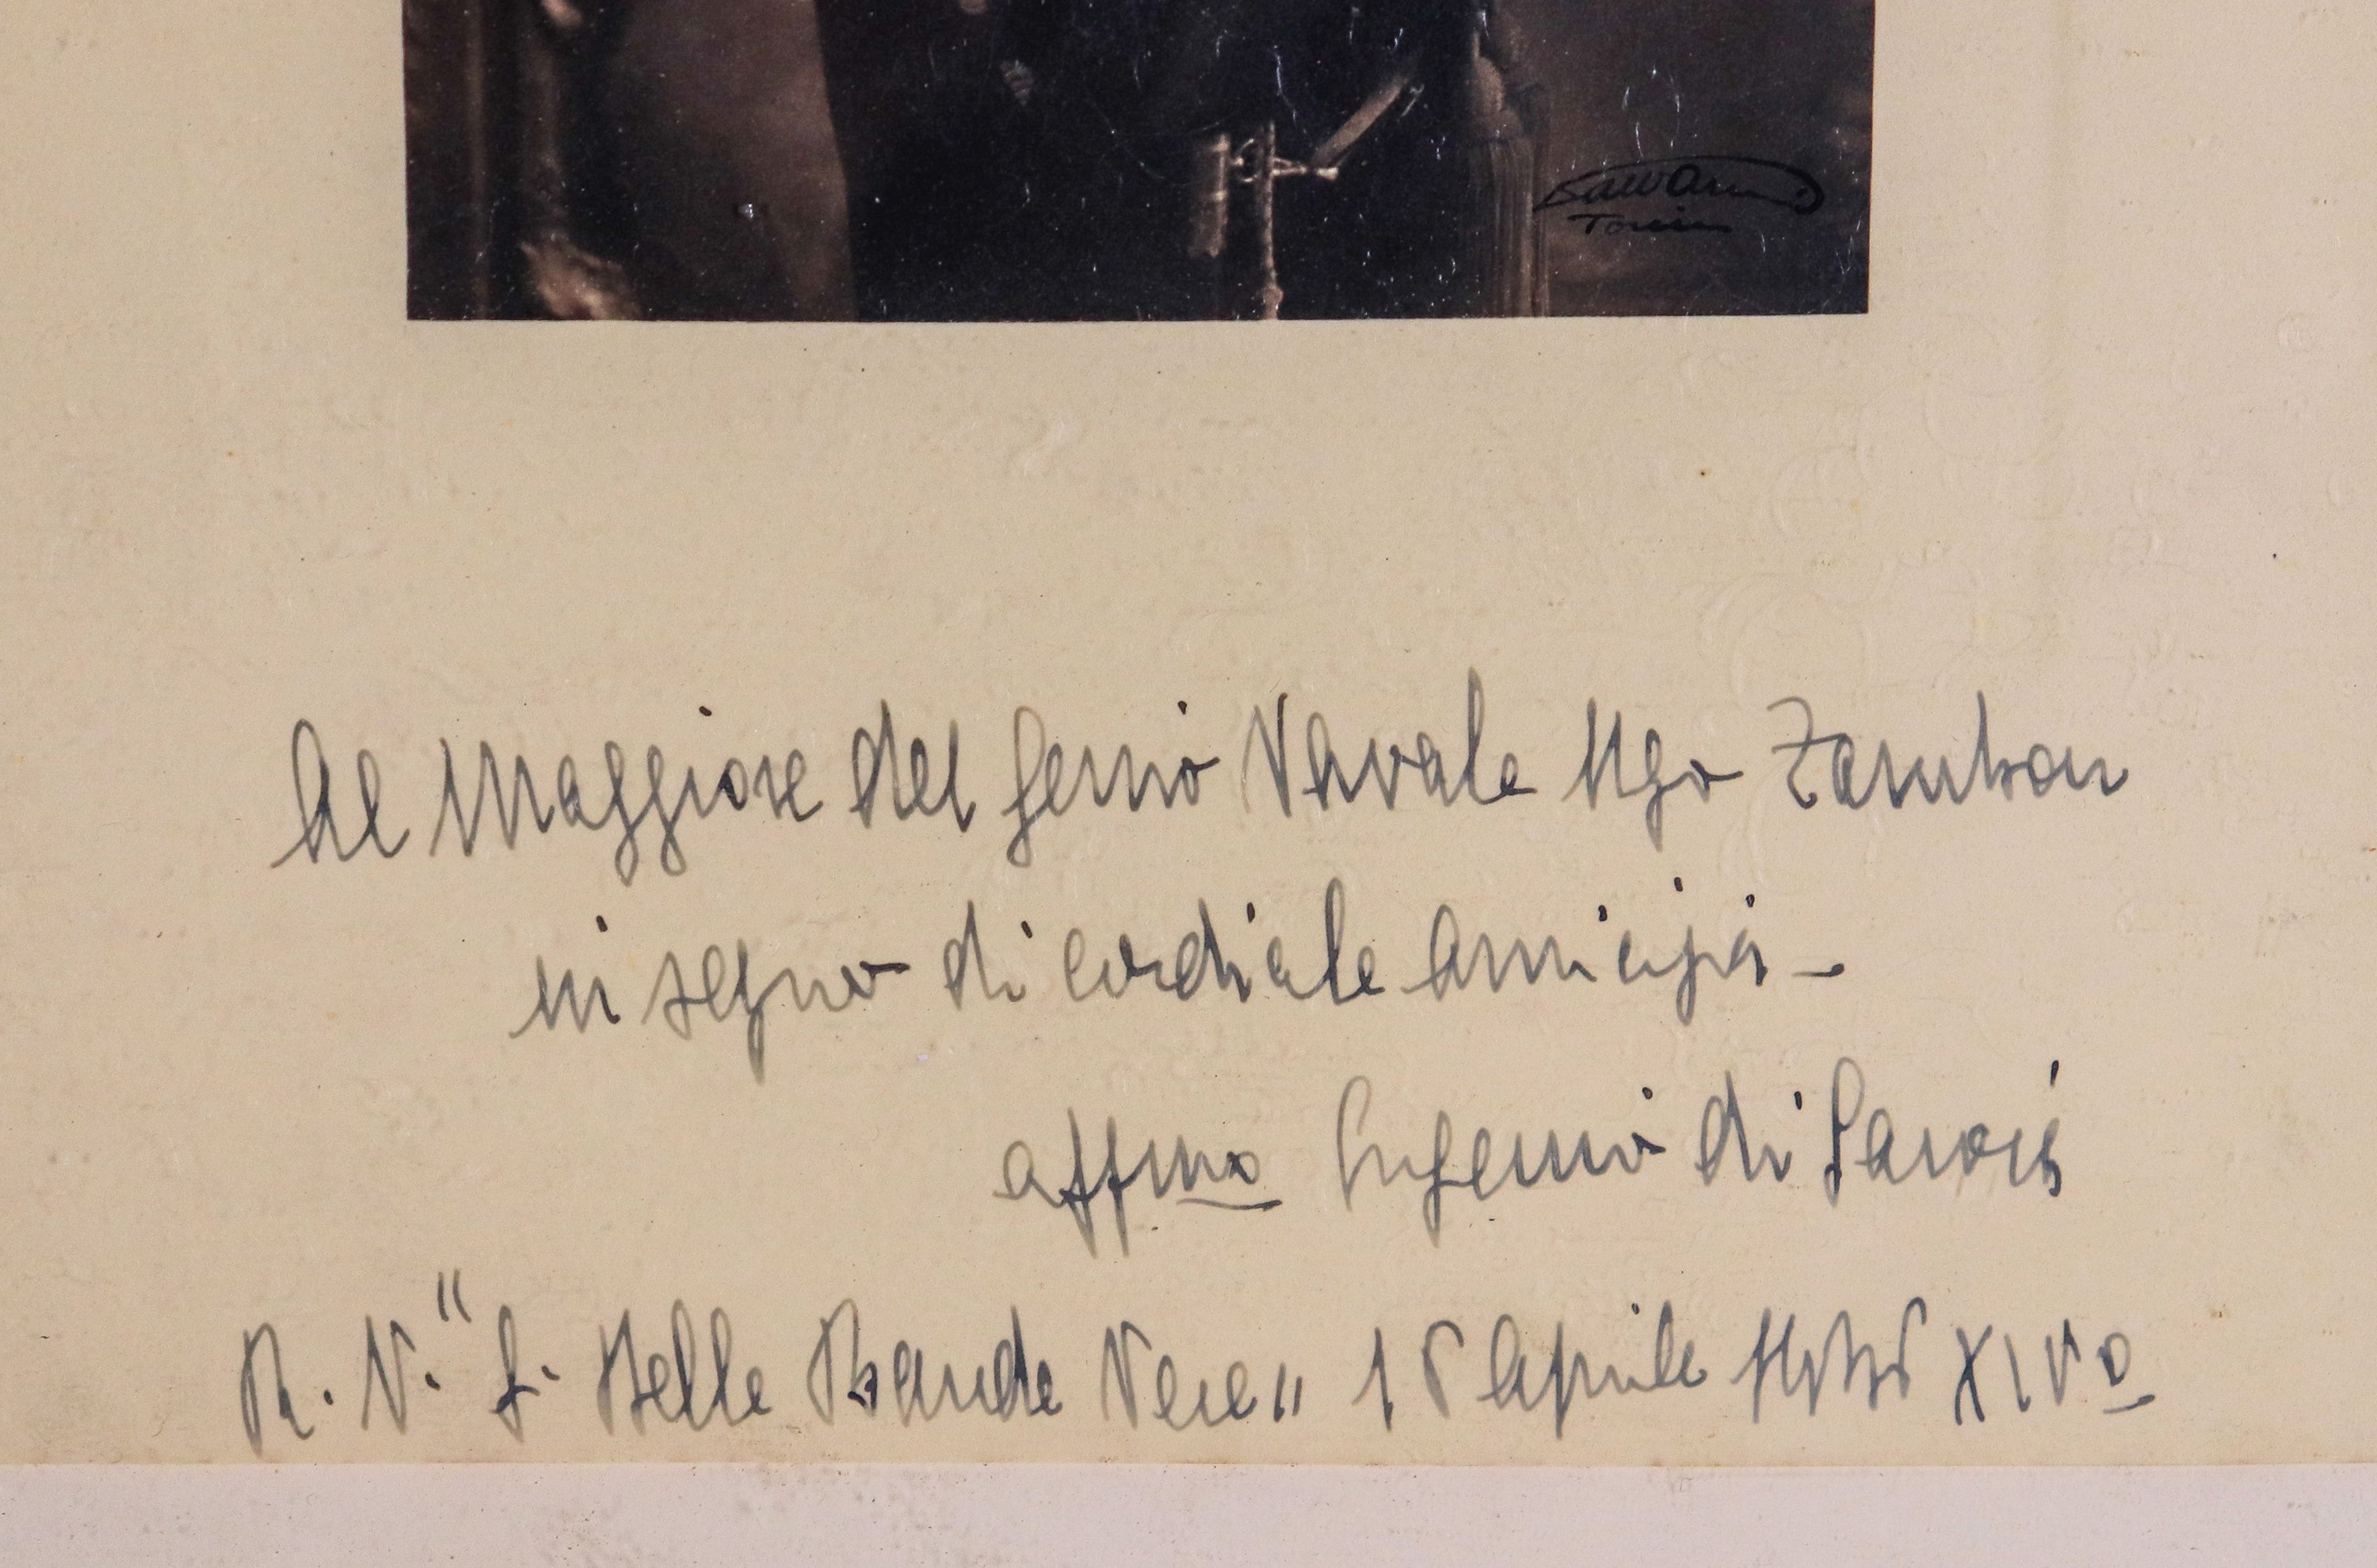 Torino
Al Maggiore del Genio Navale Ugo Zambon
in segno di cordiale amicizia -
affmo Eugenio di Savoia
R. N. "G. delle Bande Nere" 15 Aprile XIVo